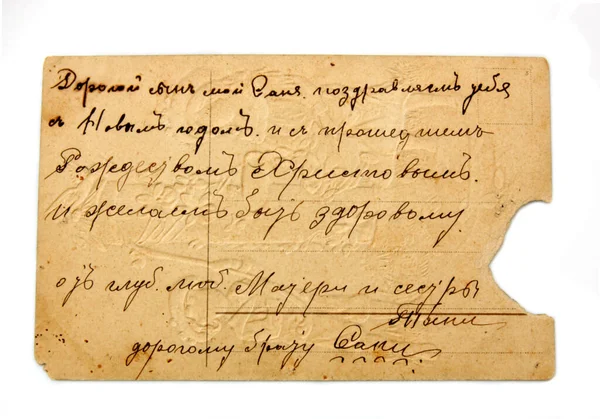 Дорогой сынъ мой Саня. поздравляемъ тебя
съ Новымъ годомъ. и съ прошедшимъ
Рождествомъ Христовымъ.
и желаемъ быть здоровому.
отъ глуб. люб. Матери и сестры
Тани
дорогому брату Сани